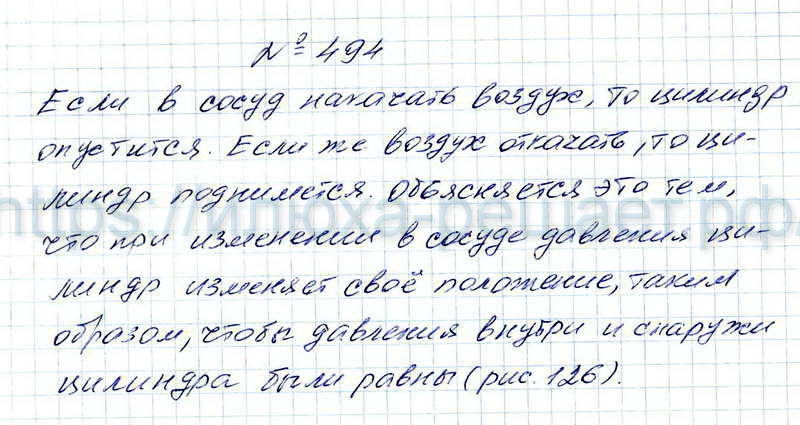 № 494
Если в сосуд накачать воздух, то цилиндр
опустится. Если же воздух откачать, то ци-
линдр поднимется. Объясняется это тем,
https://илюха-решает.рф/
что при изменении в сосуде давления ци-
линдр изменяет своё положение, таким
образом, чтобы давления внутри и снаружи
цилиндра были равны (рис. 126).